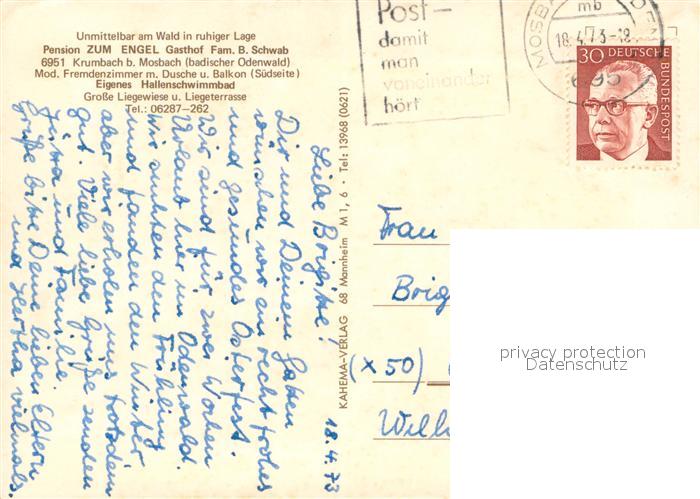 Unmittelbar am Wald in ruhiger Lage
Pension ZUM ENGEL Gasthof Fam. B. Schwab
6951 Krumbach b. Mosbach (badischer Odenwald)
Mod. Fremdenzimmer m. Dusche u. Balkon (Südseite)
Eigenes Hallenschwimmbad
Große Liegewiese u. Liegeterrasse
Tel.: 06287—262
Post—
damit
man
voneinander
hört
MOSBA
mb
18.4.73-18
695
30 DEUTSCHE
BUNDESPOST
KAHEMA-VERLAG 68 Mannheim M 1, 6 · Tel: 13968 (0621)
18.4.73
Liebe Brigitte!
Dir und Deinem Gatten
wünschen wir ein recht frohes
und gesundes Osterfest.
Wir sind für zwei Wochen
Urlaub hier im Odenwald.
Wir suchten den Frühling
und fanden den Winter
aber wir erholen uns trotzdem
gut. Viele liebe Grüße senden
Jutta und Familie.
Grüße bitte Deine lieben Eltern
und Hertha vielmals
Frau
Brig
(x 50)
Wilh
privacy protection
Datenschutz